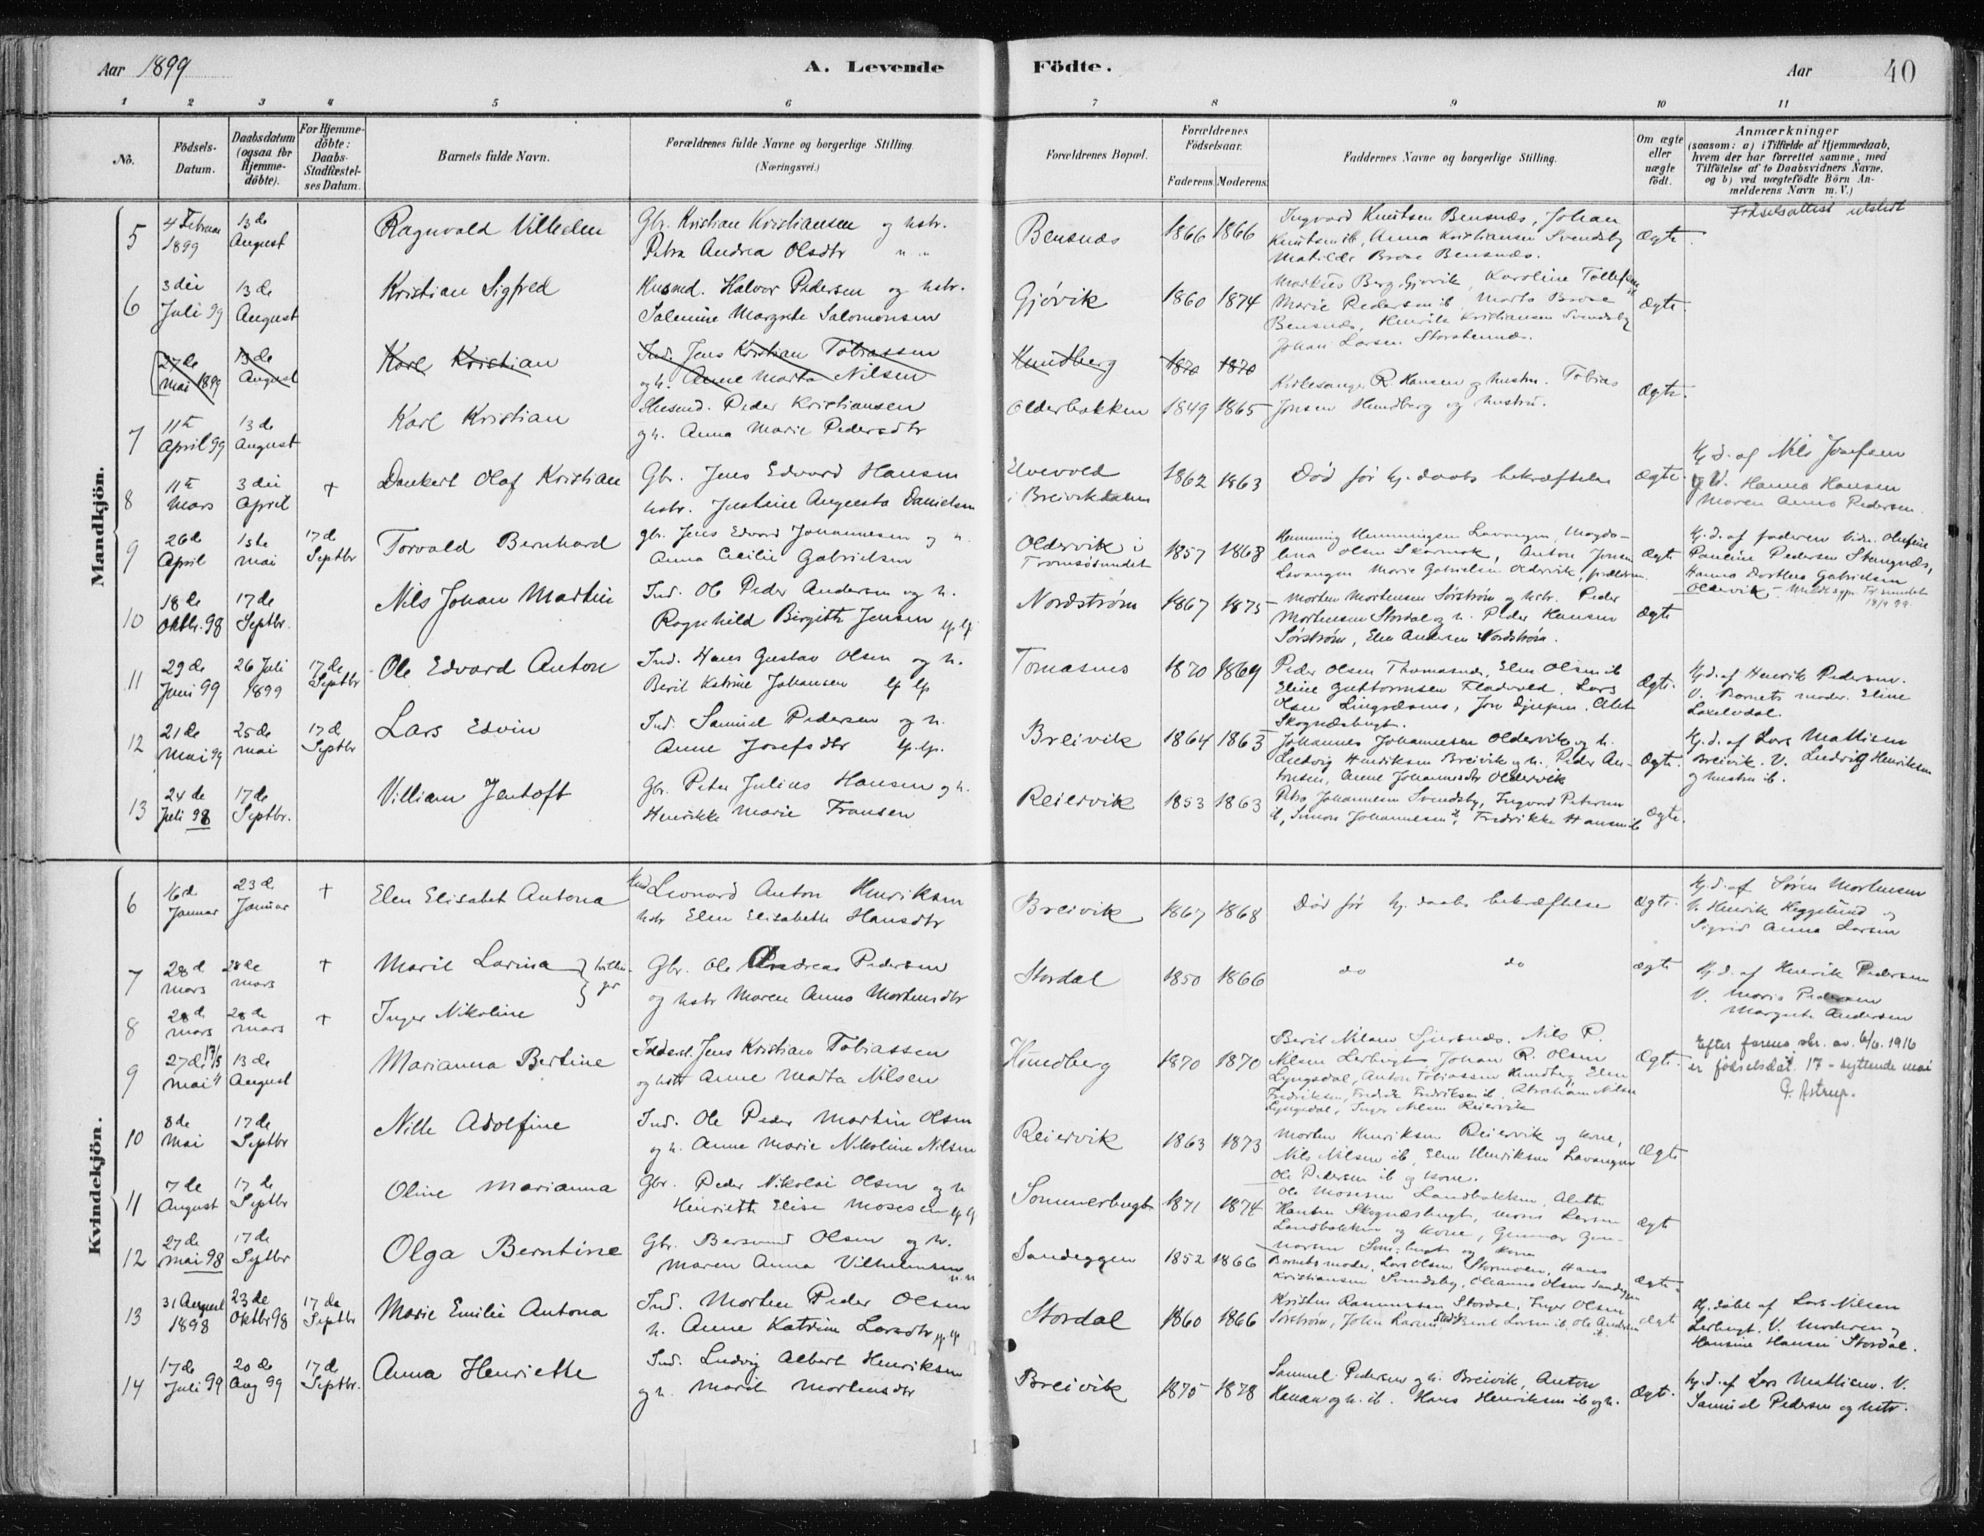 Aar 1899 A. Levende Födte. Aar 40
1 2 3 4 5 6 7 8 9 10 11
No. Födsels-Datum. Daabsdatum (ogsaa for Hjemme-döbte). For Hjemme-döbte: Daabs-Stadfæstel-ses Datum. Barnets fulde Navn. Forældrenes fulde Navne og borgerlige Stilling. (Næringsvei.) Forældrenes Bopæl. Forældrenes Födselsaar. Faderens Moderens Faddernes Navne og borgerlige Stilling. Om ægte eller uægte födt. Anmærkninger (saasom: a) i Tilfælde af Hjemmedaab, hvem der har forrettet samme, med Tilföielse af to Daabsvidners Navne, og b) ved uægtefödte Börn An-melderens Navn m. V.)
Mandkjön.
5 4 Februar 1899 13de August Ragnvald Vilhelm Gbr. Kristian Kristiansen og hstr. Petra Andrea Olsdtr Bensnæs 1866 1866 Ingvard Knutsen Bensnæs, Johan Knutsen ib, Anna Kristiansen Svendsby Matilde Brose Bensnæs. Ægte. Fødselsattest utstedt
6 3die Juli 99 13de August Kristian Sigfred Husmd. Halvor Pedersen og hstr. Salemine Margrete Salomonsen Gjövik 1860 1874 Markus Berg Gjövik, Karoline Tollefsen Marie Pedersen ib Marta Brose Bensnæs, Henrik Kristiansen Svendsby Johan Larsen Storstennæs. Ægte.
27de mai 1899 13de August Karl Kristian Ind. Jens Kristian Tobiassen og h. Anne Marta Nilsen Hundberg 1870 1870
7 11te April 99 13de August Karl Kristian Husmd. Peder Kristiansen og h. Anna Marie Pedersdtr Olderbakken 1849 1865 Kirkesanger R. Hansen og hustru. Tobias Jensen Hundberg og hustru. Ægte.
8 11te Mars 3die April + Dankert Olaf Kristian Gbr. Jens Edvard Hansen hstr. Justine Augusta Danielsen Elvevold i Breivikdalen 1862 1863 Død før hj. daabs bekræftelse Ægte Hj. d. af Nils Josefsen V. Hanna Hansen Maren Anna Pedersen.
9 26de April 13de mai 17de Septbr Torvald Bernhard gbr. Jens Edvard Johannesen og h. Anna Cecilie Gabrielsen Oldervik i Tromsøsundet 1857 1868 Hemming Hemmingsen Lavangen, Magdalena Olsen Skarmok, Anton Jensen Lavangen Marie Gabrielsen Oldervik, forældrene. Ægte Hj. d. af faderen Pauline Pedersen Stengnæs, Hanna Dorthea Gabrielsen Oldervik
10 18de Oktbr. 98 17de Septbr. Nils Johan Martin Ind. Ole Peder Andersen og h. Ragnhild Birgitte Jensen Nordstrøm 1867 1875 Morten Mortensen Sørstrøm og hstr. Peder Mortensen Stordal og h. Peder Hansen Sørstrøm, Elen Andersen Nordstrøm. Ægte
11 29de Juni 99 26 Juli 1899 17de Septbr Ole Edvard Anton Ind. Hans Gustav Olsen og h. Beril Katrine Johansen Tomasnes 1870 1869 Peder Olsen Thomasnæs, Elen Olsen ib Eline Guttormsen Fladvold, Lars Olsen Ægte. Hj. d. af Henrik Pedersen. V. Barnets moder. Eline
12 21de Mai 99 25de mai 17de Septbr Lars Edvin Ind. Samuel Pedersen og h. Anne Josefsdtr Breivik 1864 1863 Johannes Johannesen Oldervik og h. Ludvig Henriksen Breivik og h. Peder Antonsen, Anne Johannesdtr Oldervik Ægte. Hj. d. af Lars Mathisen Breivik. V. Ludvig Henriksen og hustru ib.
13 24de Juli 98 17de Septbr. Villiam Jentoft Gbr. Peter Julius Hansen og h. Henrikke Marie Fransen Reiervik 1853 1863 Petra Johannesen Svendsby, Ingvard Petersen ib, Simon Johannesen ib, Fredrikke Hansen ib Ægte.
Kvindekjön.
6 16de Januar 23de Januar + Elen Elisabet Antona Ind Leonard Anton Henriksen hstr Elen Elisabeth Hansdtr Breivik 1867 1868 Død før hj. daabs bekræftelse Ægte. Hj. d. af Søren Mortensen V. Henrik Heggelund og Sigrid Anna Larsen
7 28de Mars 28de Mars + Marit Larina } tvillinger Gbr. Ole Andreas Pedersen og hstr Maren Anna Mortensdtr Stordal 1850 1866 do do ægte Hj. d. af Henrik Pedersen V. Maria Pedersen Margrete Andersen
8 28de Mars 28de Mars + Inger Nikoline
9 27de 17/5 Mai 13de August Marianna Bertine Inderst. Jens Kristian Tobiassen og hstr Anne Marta Nilsen Hundberg 1870 1870 Beril Nilsen Sjursnæs. Nils P. Nilsen Lerbugt Johan R. Olsen Lyngsdal, Anton Tobiassen Hundberg Elen Fredriksen, Fredrik Fredriksen ib. Abraham Nilsen Lyngsdal, Inger Nilsen Reiervik Ægte. Efter farens skr. av 6/6. 1916 er fødselsdat. 17 - syttende mai P. Astrup.
10 8de Mai 17de Septbr Nille Adolfine Ind. Ole Peder Martin Olsen og h. Anne Marie Nikoline Nilsen Reiervik 1863 1873 Morten Henriksen Reiervik og kone, Nils Nilsen ib, Elen Henriksen Lavangen Ole Pedersen ib og kone. Ægte
11 7de August 17de Septbr Oline Marianna Gbr. Peder Nikolai Olsen og h Henriette Elise Mosesen Sommerbugt 1871 1874 Ole Mosesen Landbakken, Aletta Hansen Skognæsbugt, Moses Larsen Landbakken og kone, Gunnar Gunnarsen Som.bugt og kone Ægte
12 27de Mai 98 17de Septbr Olga Berntine Gbr. Bersvend Olsen og h. Maren Anna Vilhelmsen Sandeggen 1852 1866 Barnets moder, Lars Olsen Stormoen, Hans Kristiansen Svendsby, Johanna Olsen Sandeggen Ægte
13 31 August 1898 23de Oktbr 98 17de Septbr Marie Emilie Antona Ind. Morten Peder Olsen h. Anne Katrine Larsdtr Stordal 1860 1866 Kristen Rasmussen Stordal, Inger Olsen Sørstrøm, John Larsen Stordal Berit Larsen ib, Ole Andersen ib. Ægte Hj. døbt af Lars Nilsen Lerbugt. V. Moderen og Hansine Hansen Stordal.
14 17de Juli 99 20de Aug 99 17de Septbr. Anna Henriette Ind. Ludvig Albert Henriksen og h. Marit Mortensdtr Breivik 1875 1878 Samuel Pedersen og h. Breivik, Anton Hansen og h. ib. Hans Henriksen ib og h. Ægte. Hj. d. af Lars Mathisen. V. Samuel Pedersen og hstr.